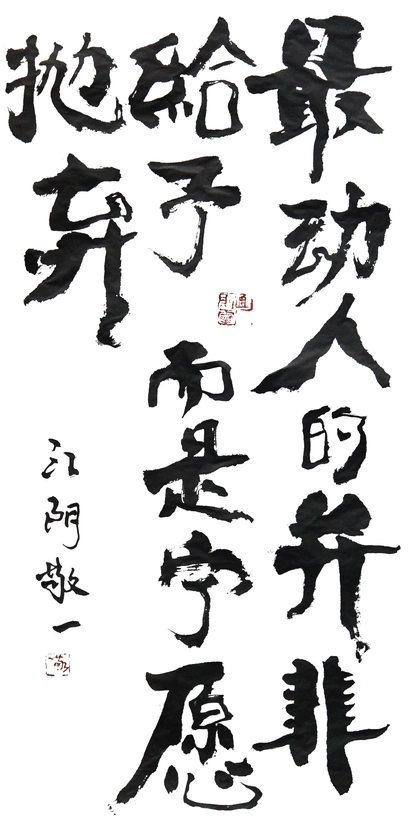 最动人的并非
給予
而是宁愿
抛弃
江阴敬一